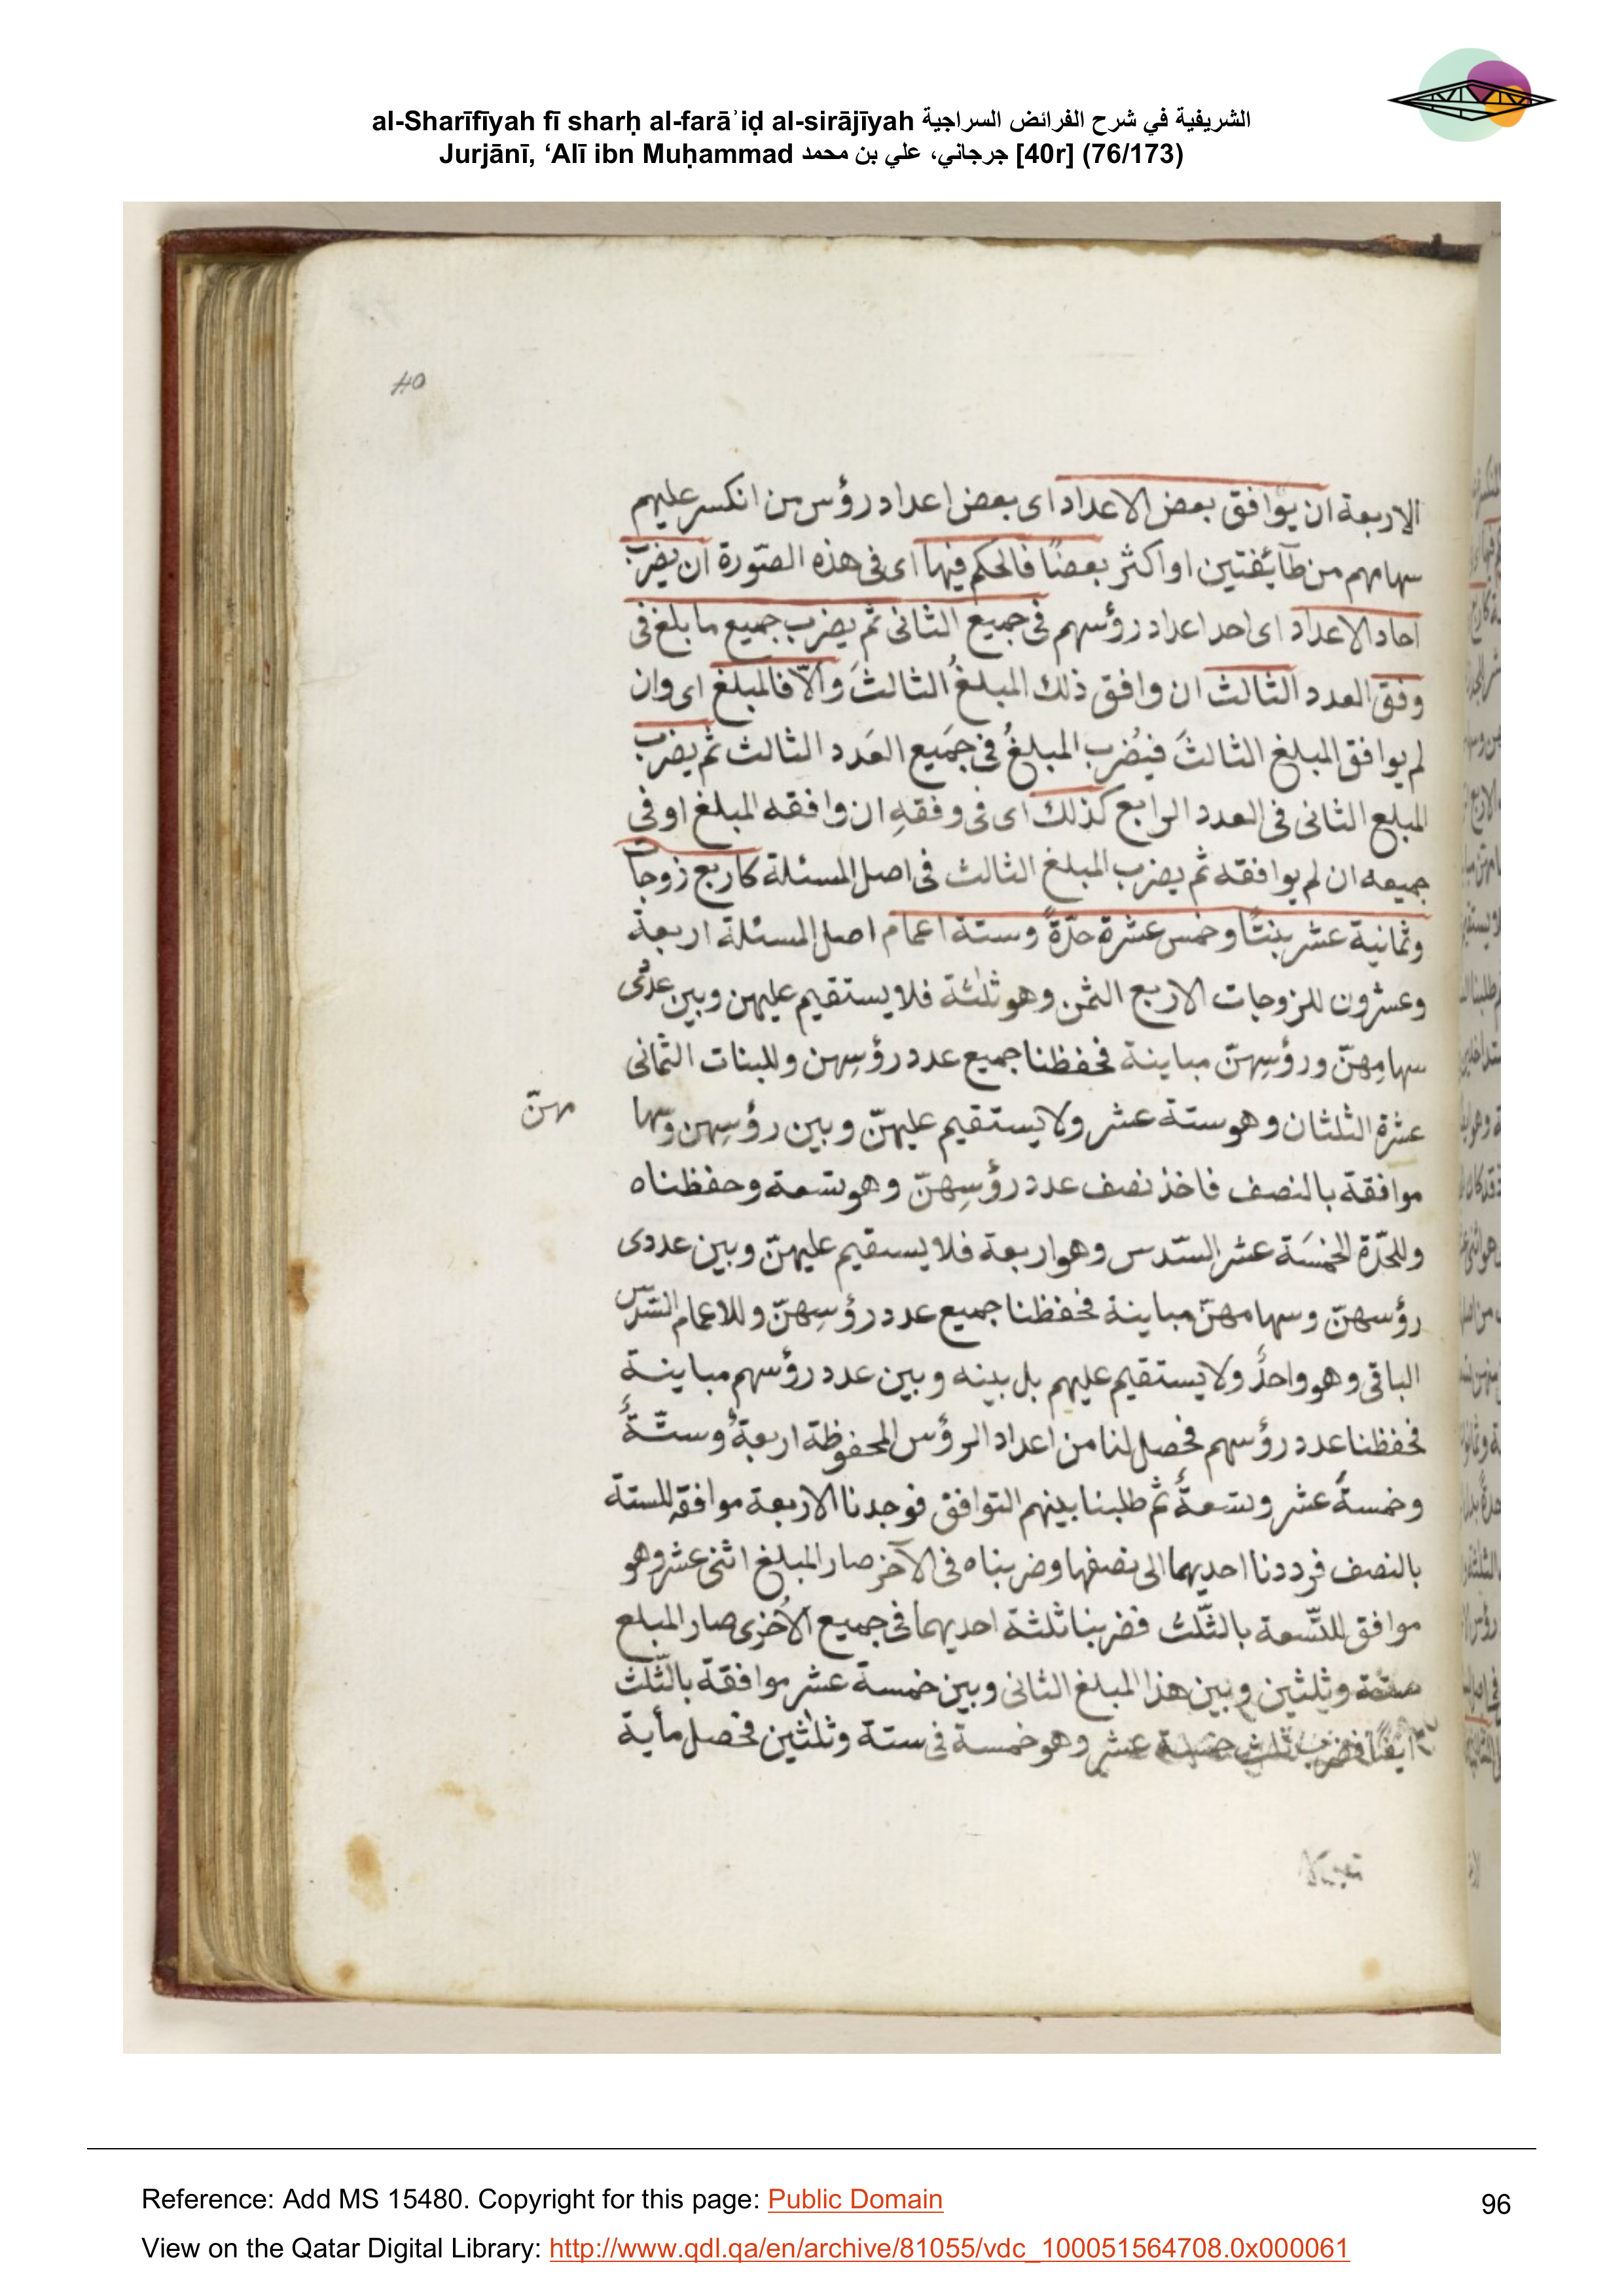 al-Sharīfīyah fī sharḥ al-farāʾiḍ al-sirājīyah الشريفية في شرح الفرائض السراجية
Jurjānī, ‘Alī ibn Muḥammad جرجاني، علي بن محمد [40r] (76/173)
40
الاربعة ان يوافق بعض الاعداد اى بعض اعداد رؤس من انكسر عليهم
سهامهم من طآئفتين او اكثر بعضًا فالحكم فيها اى فى هذه الصّورة ان يضرب
احاد الاعداد اى احد اعداد رؤسهم فى جميع الثانى ثم يضرب جميع ما بلغ فى
وفق العدد الثالث ان وافق ذلك المبلغُ الثالثَ والّا فالمبلغ اى وان
لم يوافق المبلغ الثالثَ فيُضرب المبلغُ فى جَميع العَدد الثالث ثم يضرب
المبلع الثانى فى العدد الرابع كذلك اى فى وفقهِ ان وافقه المبلغ او فى
جميعه ان لم يوافقه ثم يضرب المبلغ الثالث فى اصل المسئلة كاربع زوجاً
وثمانية عشر بنتًا وخمس عشرة جدّةً وستة اعمام اصل المسئلة اربعة
وعشرون للزوجات الاربع الثمن وهو ثلٰثة فلا يستقيم عليهن وبين عددى
سهامِهنّ ورؤسِهنّ مباينة فحفظنا جميع عدد رؤسِهن وللبنات الثمانى
عشرة الثلثان وهو ستة عشر ولا يستقيم عليهنّ وبين رؤسِهن وسها مهنّ
موافقة بالنصف فاخذ نصف عدد رؤسِهنّ وهو تسعة وحفظناه
وللجدّة الخمسَة عشر السّدس وهو اربعة فلا يستقيم عليهنّ وبين عددى
رؤسهنّ وسهامهنّ مباينة فحفظنا جميع عدد رؤسِهنّ وللاعمام السّدس
الباقى وهو واحدٌ ولا يستقيم عليهم بل بينه وبين عدد رؤسهم مباينة
فحفظنا عدد رؤسهم فحصل لنا من اعداد الرؤس المحفوظة اربعةٌ وستّةٌ
وخمسةَ عشر وتسعةٌ ثم طلبنا بينهم التوافق فوجدنا الاربعة موافقه للستة
بالنصف فرددنا احديهما الى نصفها وضربناه فى الآخر صار المبلغ اثنى عشر وهو
موافق للتّسعة بالثّلث فضربنا ثلثة احديهما فى جميع الأخرى صار المبلع
ستة وثلثين وبين هذا المبلغ الثانى وبين خمسة عشر موافقة بالثّلث
ايضًا فضرب ثلث خمسة عشر وهو خمسة فى ستة وثلٰثين فحصل مأية
Reference: Add MS 15480. Copyright for this page: Public Domain
96
View on the Qatar Digital Library: http://www.qdl.qa/en/archive/81055/vdc_100051564708.0x000061